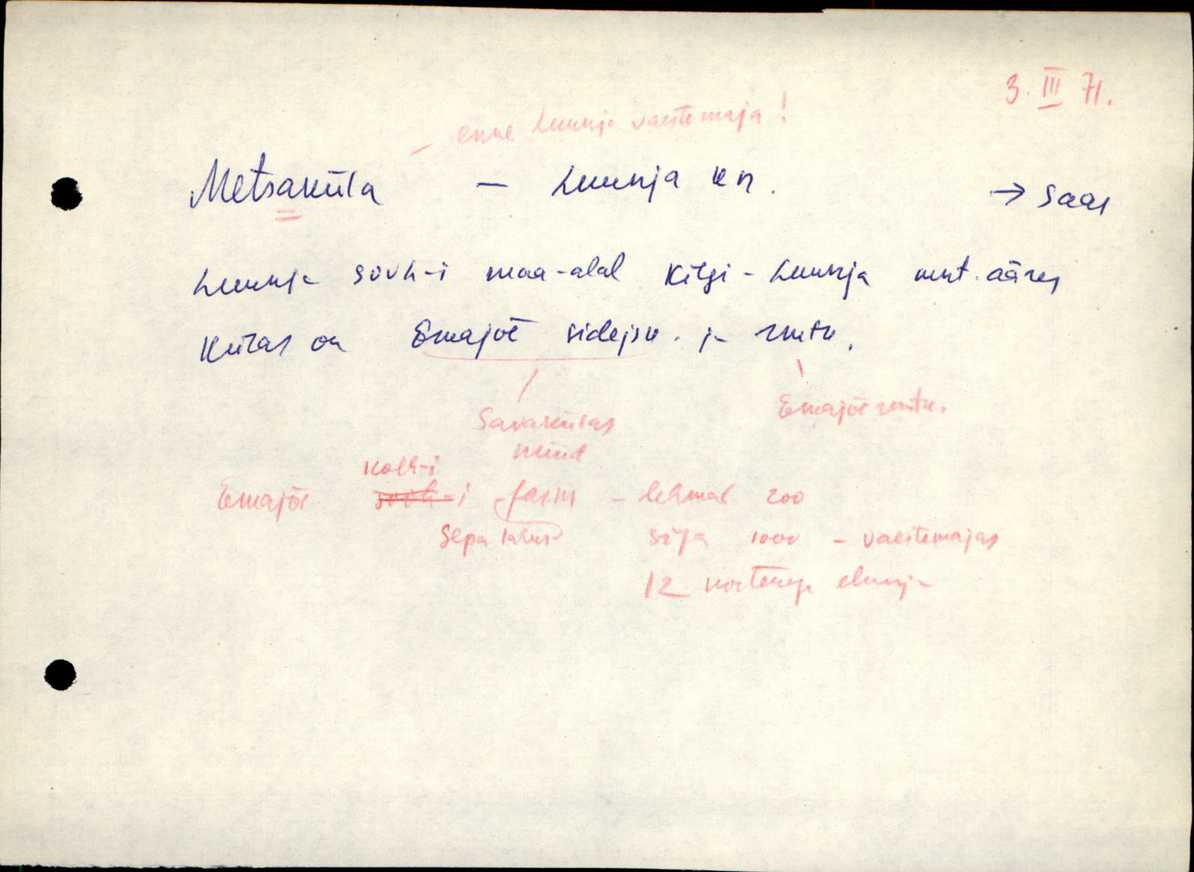 3. III 71.
– enne Luunja vaestemaja!
Metsaküla – Luunja kn. → Saas
Luunja sovh-i maa-alal Kitgi-Luunja mnt. ääres
Külas on Emajõe sidejsk. ja rmtk.
Savakülas
nüüd
Emajõe rmtk.
kolh-i
Emajõe sovh-i farm – lehmad 200
Sepa talus
siga 1000 – vaestemajas
12 elunja